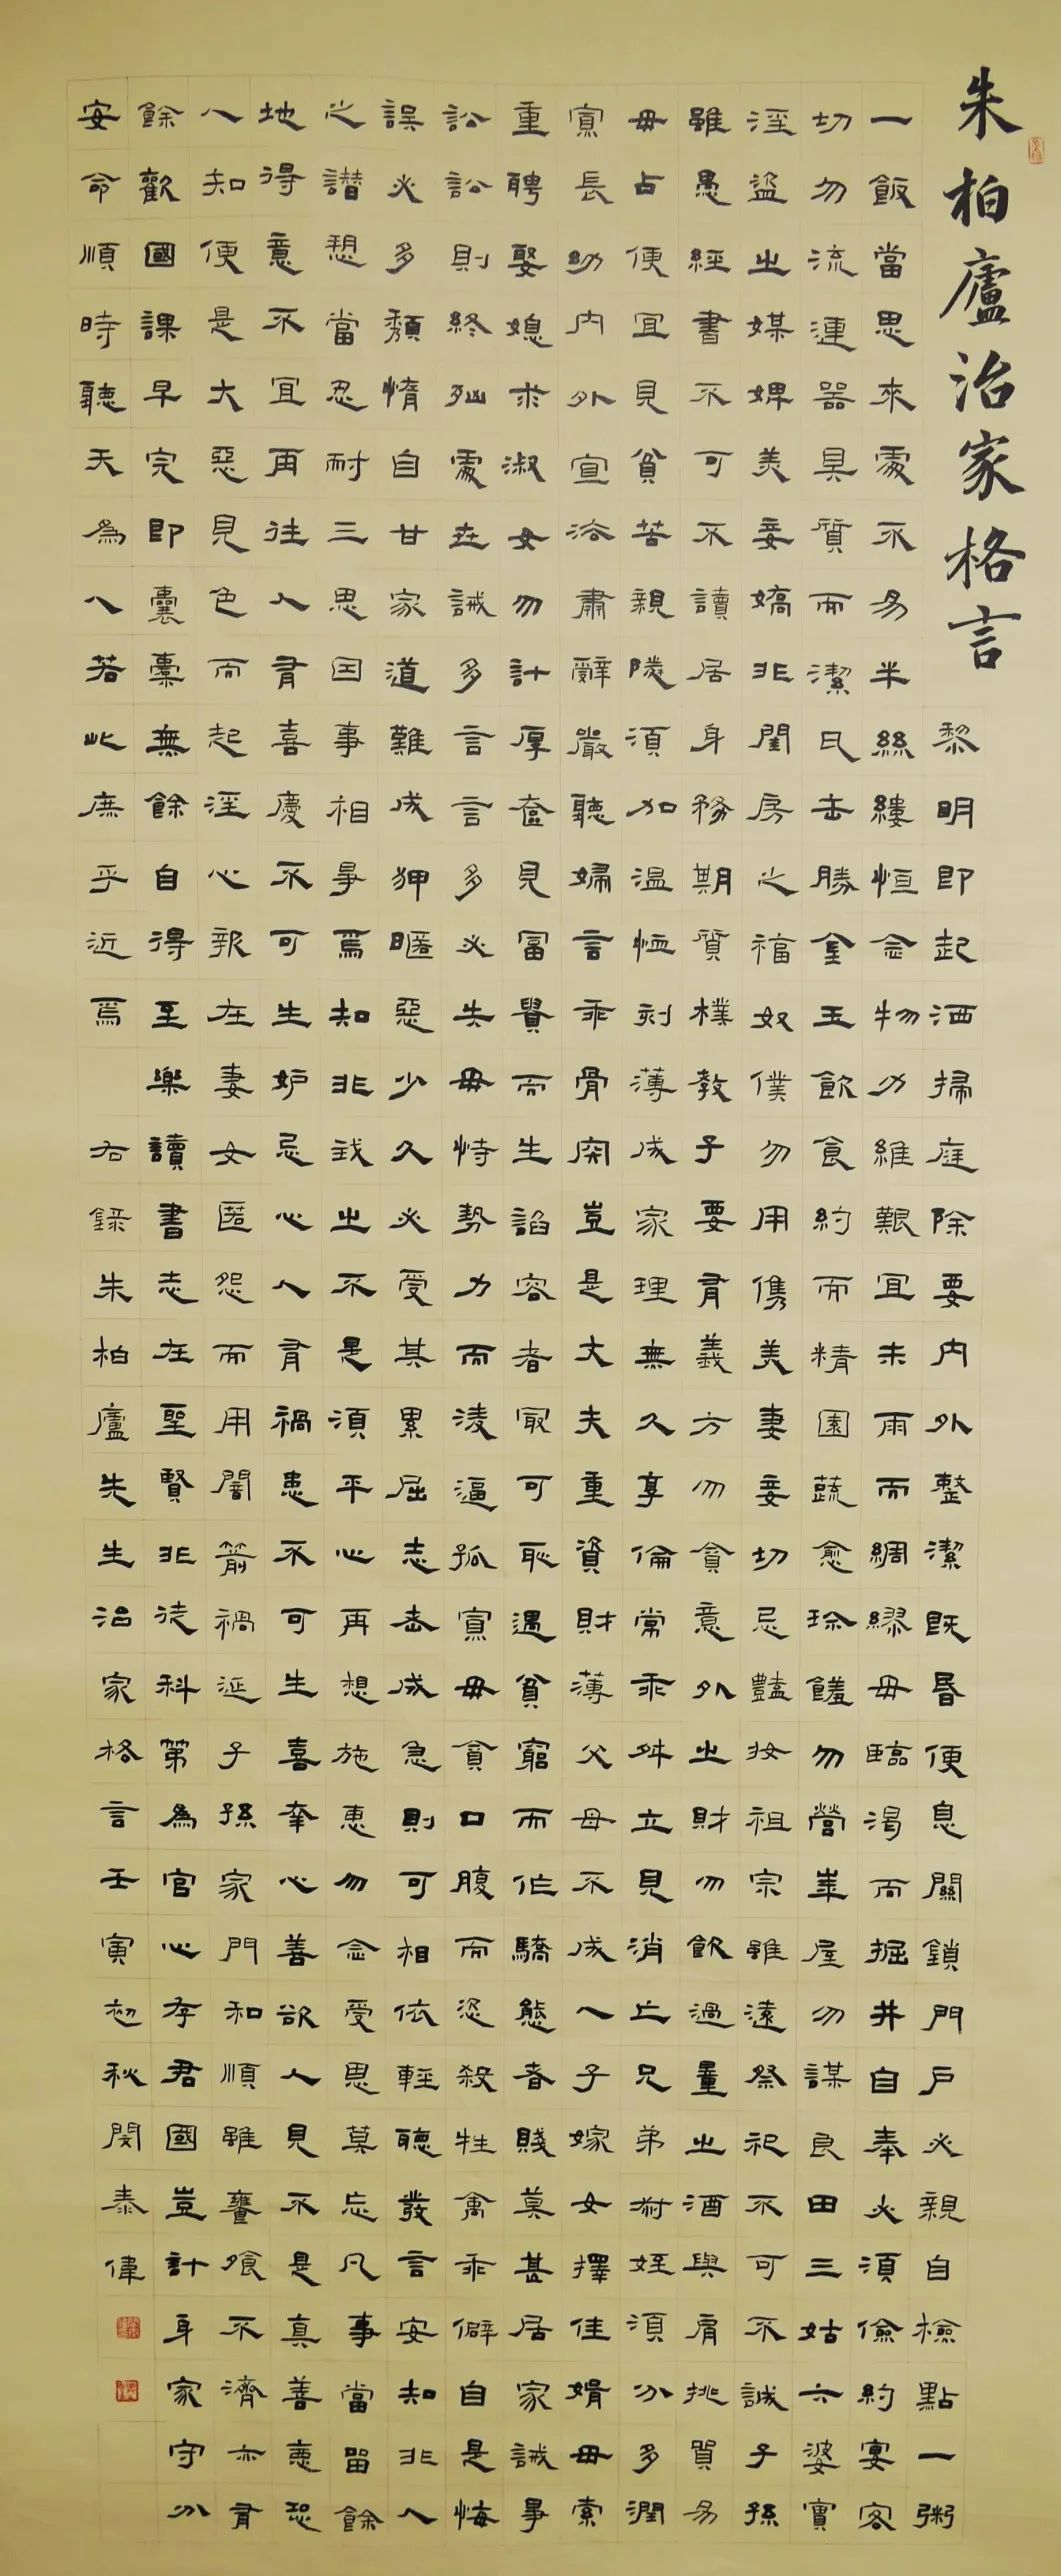 朱柏廬治家格言
黎明即起洒掃庭除要内外整潔既昏便息關鎖門戶必親自檢點一粥
一飯當思來處不易半絲縷恒念物力維艱宜未雨而綢繆毋臨渴而掘井自奉必須儉約宴客
切勿流連器具質而潔瓦缶勝金玉飲食約而精園蔬愈珍饈勿營華屋勿謀良田三姑六婆實
淫盜之媒婢美妾嬌非閨房之福奴僕勿用儁美妻妾切忌豔妝祖宗雖遠祭祀不可不誠子孫
雖愚經書不可不讀居身務期質樸教子要有義方勿貪意外之財勿飲過量之酒與肩挑貿易
毋占便宜見貧苦親隣須加溫恤刻薄成家理無久享倫常乖舛立見消亡兄弟叔姪須分多潤
寡長幼内外宣法肅辭嚴聽婦言乖骨肉豈是丈夫重資財薄父母不成人子嫁女擇佳婿毋索
重聘娶媳求淑女勿計厚奩見富貴而生諂容者最可恥遇貧窮而作驕態者賤莫甚居家誡爭
訟訟則終凶處世誡多言言多必失毋恃勢力而凌逼孤寡毋貪口腹而恣殺牲禽乖僻自是悔
誤必多頹惰自甘家道難成狎暱惡少久必受其累屈志老成急則可相依輕聽發言安知非人
之譖愬當忍耐三思因事相爭焉知非我之不是須平心再想施惠勿念受恩莫忘凡事當留餘
地得意不宜再往人有喜慶不可生妒忌心人有禍患不可生喜幸心善欲人見不是真善惡恐
人知便是大惡見色而起淫心報在妻女匿怨而用闇箭禍延子孫家門和順雖饔飧不濟亦有
餘歡國課早完即囊橐無餘自得至樂讀書志在聖賢非徒科第為官心存君國豈計身家守分
安命順時聽天為人若此庶乎近焉 右錄朱柏廬先生治家格言壬寅初秋閔泰偉